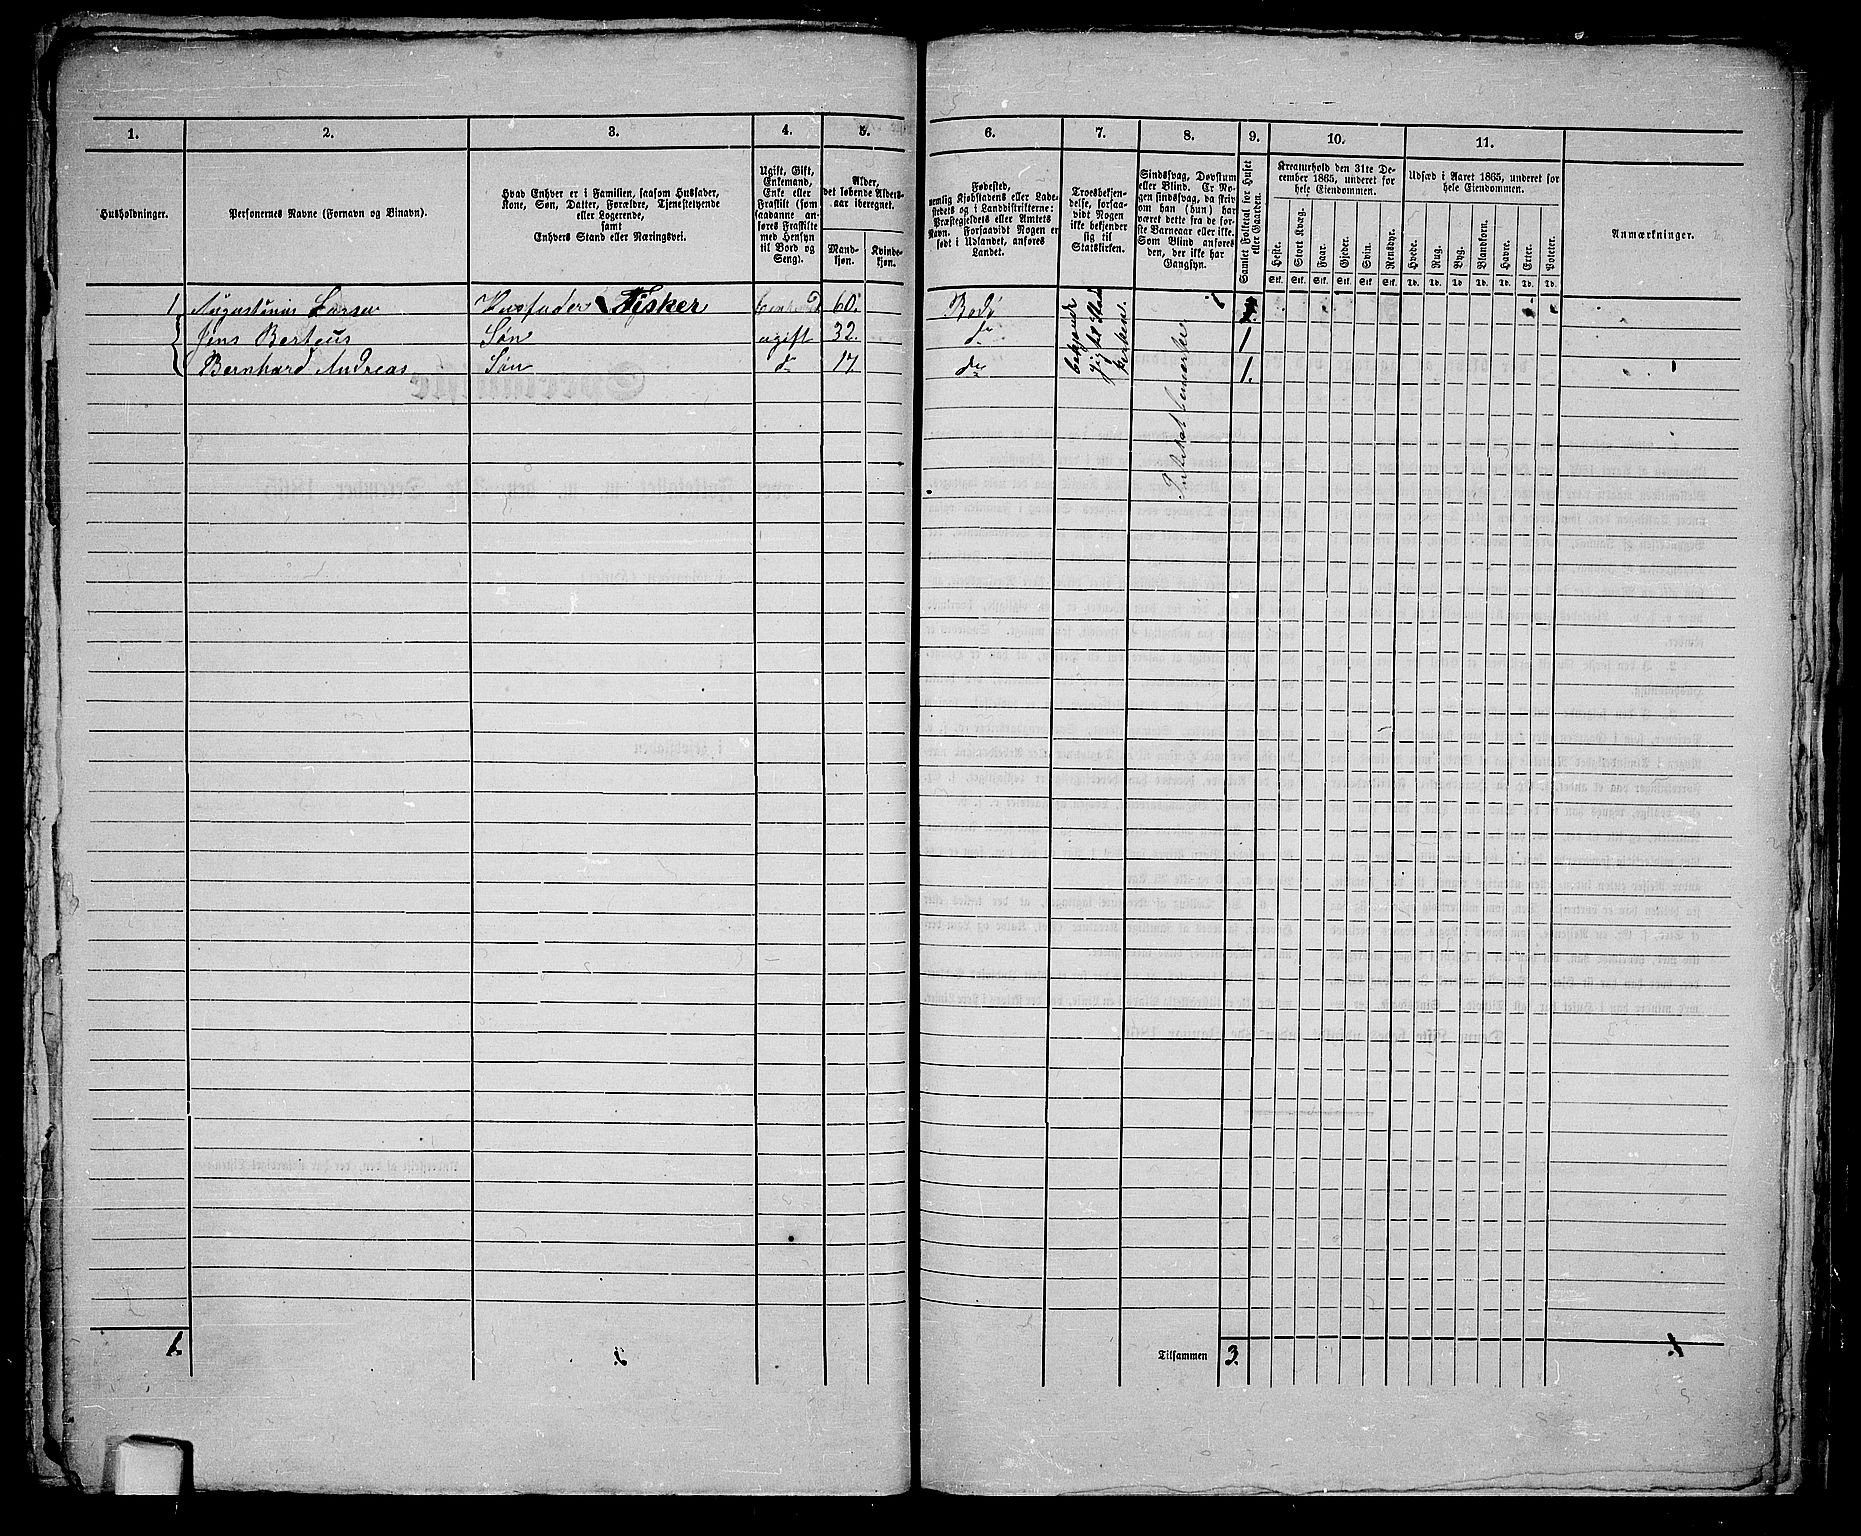 1. 2. 3. 4. 5. 6. 7. 8. 9. 10. 11.
Husholdninger.
Personernes Navne (Fornavn og Binavn).
Hvad Enhver er i Familien, saasom Husfader,
Kone, Søn, Datter, Forældre, Tjenestetyende
eller Logerende,
samt
Enhvers Stand eller Næringsvei.
Ugift, Gift,
Enkemand,
Enke eller
Fraskilt (som
saadanne an-
føres Fraskilte
med Hensyn
til Bord og
Seng).
Alder,
det løbende Alders-
aar iberegnet.
Mand-
kjøn.
Kvinde-
kjøn.
Fødested,
nemlig Kjøbstadens eller Lade-
stedets og i Landdistrikterne:
Præstegjeldets eller Amtets
Navn. Forsaavidt Nogen er
født i Udlandet, anføres
Landet.
Troesbekjen-
delse, forsaa-
vidt Nogen
ikke bekjender
sig til
Statskirken.
Sindssvag, Døvstum
eller Blind. Er No-
gen sindssvag, da skriv
om han (hun) har
været dette fra de før-
ste Barneaar eller ikke.
Som Blind anføres
den, der ikke har
Gangsyn.
Samlet Folketal for Huset
eller Gaarden.
Kreaturhold den 31te De-
cember 1865, underet for
hele Eiendommen.
Heste. Stort Kvæg. Faar. Gjeder. Svin. Rensdyr.
Stk. Stk. Stk. Stk. Stk. Stk.
Udsæd i Aaret 1865, underet for
hele Eiendommen.
Hvede. Rug. Byg. Blandkorn. Havre. Erter. Poteter.
Td. Td. Td. Td. Td. Td. Td.
Anmærkninger.
1 Augustinus Larsen Husfader Fisker 60. Bodø
Jens Berteus Søn ugift 32. do 1
Bernhard Andreas Søn do 17 do 1.
1.
Tilsammen 3.